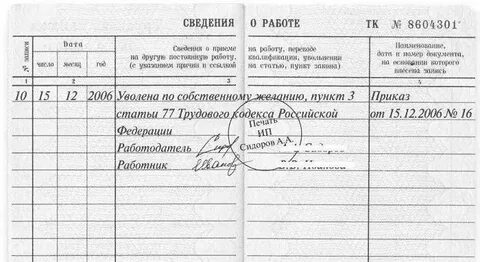 СВЕДЕНИЯ О РАБОТЕ ТК № 8604301
№ записи
Дата
число месяц год
Сведения о приеме
на другую постоянную работу,
(с указанием причин и ссылкой
на работу, переводе
квалификации, увольнении
на статью, пункт закона)
Наименование,
дата и номер документа,
на основании которого
внесена запись
1 2 3 4
10 15 12 2006 Уволена по собственному желанию, пункт 3 Приказ
статьи 77 Трудового кодекса Российской от 15.12.2006 № 16
Федерации
Работодатель
Работник
Печать
ИП
Сидоров А.А.